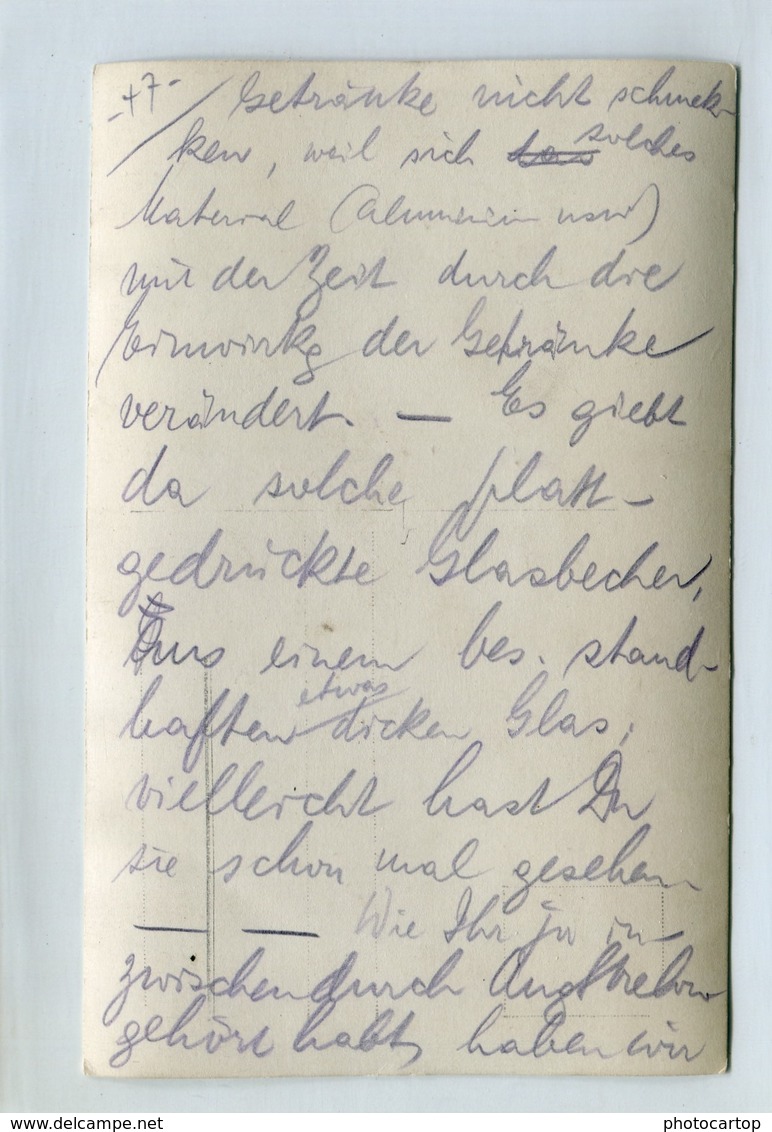 -+7-
Getränke nicht schmek-
ken, weil sich solches
Material (Aluminium usw)
mit der Zeit durch die
Einwirkg der Getränke
verändert. — Es giebt
da solche platt-
gedrückte Glasbecher,
Aus einem bes. stand-
haften etwas dicken Glas,
vielleicht hast Du
sie schon mal gesehen
— — Wie Ihr ja in-
zwischen durch
gehört habt, haben wir
www.delcampe.net
photocartop